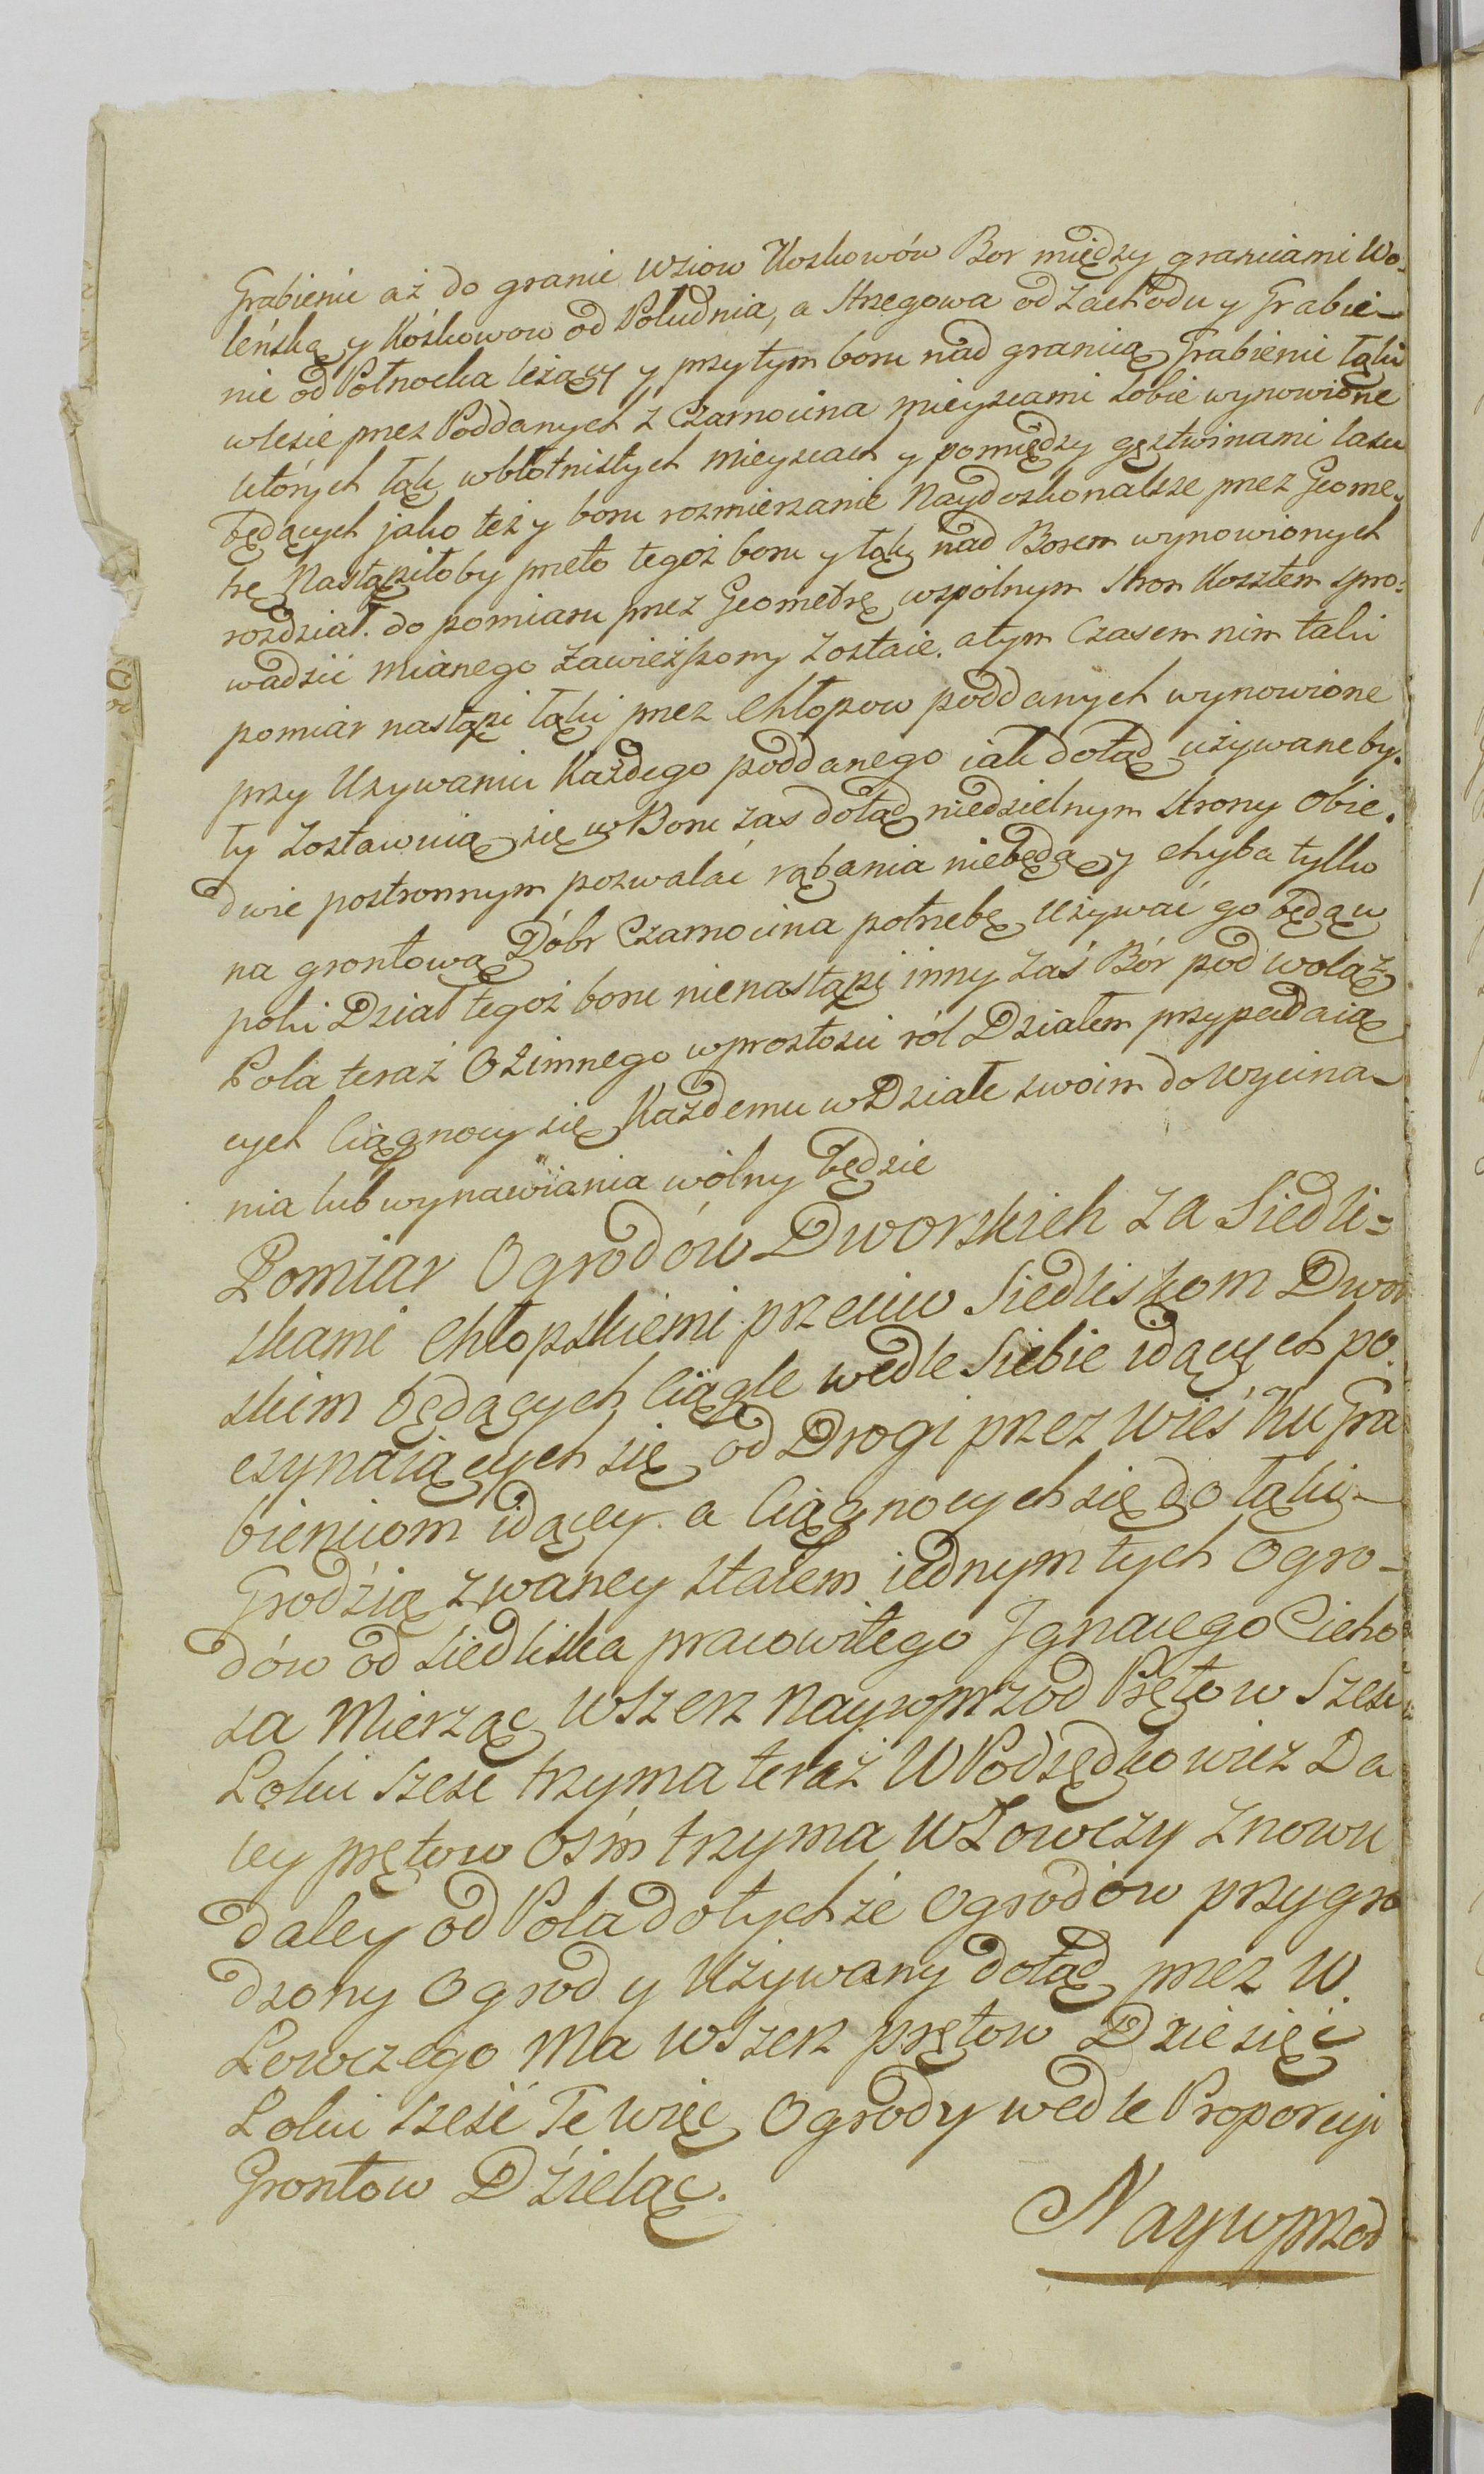 Grabienic aż do granic wsiow Koskowów Bor między granicami Wo-
leńską y Kóskowow od Południa, a Strzegowa od Zachodu y Grabie-
nic od Połnocka leżący y przy tym boru nad granicą Grabienic łąki
w lesie przez Poddanych z Czarnocina mieyscami sobie wynowione
których łąk w błotnistych mieyscach y pomiędzy gęstwinami lasu
będących jako też y boru rozmierzanie Naydoskonalsze przez Geome-
trę Nastąpiłoby przeto tegoż boru y łąk nad Borem wynowionych
rozdział. do pomiaru przez Geometrę wspólnym stron Kosztem spro-
wadzić mianego zawieszony zostaie. a tym Czasem nim taki
pomiar nastąpi łąki przez Chłopow poddanych wynowione
przy Używaniu Każdego poddanego iak dotąd używane by-
ły zostawuią się w Boru zas dotąd niedzielnym strony Obie-
dwie postronnym pozwalać rąbania niebędą y chyba tylko
na grontową Dóbr Czarnocina potrzebę Używać go będą w
poki Dział tegoż boru nienastąpi inny zaś Bór pod wolą z
Pola teraz Ozimnego wprostosci ról Działem przypadaią
cych Ciągnocy się Każdemu w Dziale swoim do wycina-
nia lub wynawiania wolny będzie
Pomiar Ogrodów Dworskich za Siedli-
skami Chłopskiemi przeciw Siedliskom Dwor
skim będących Ciągle wedle Siebie idących po-
czynaiących się od Drogi przez Wieś Ku Gra
bienicom idącey a Ciągnocych się do łąki
Grodzią zwaney stałem iednym tych Ogro-
dów od siedliska pracowitego Ignacego Cicho
sza Mierząc wszerz Naywprzod Prętow szesc
Łokci szesc trzyma teraz W Podsędkowicz Da
ley prętow Ośm trzyma W Łowczy Znowu
daley od Pola do tychże Ogrodów przygro
dzony Ogrod y Używany dotąd przez W.
Łowczego Ma wszerz prętow Dziesięć
Łokci sześć Te więc Ogrody wedle Proporcyi
Grontow Dzieląc.
Naywprzod